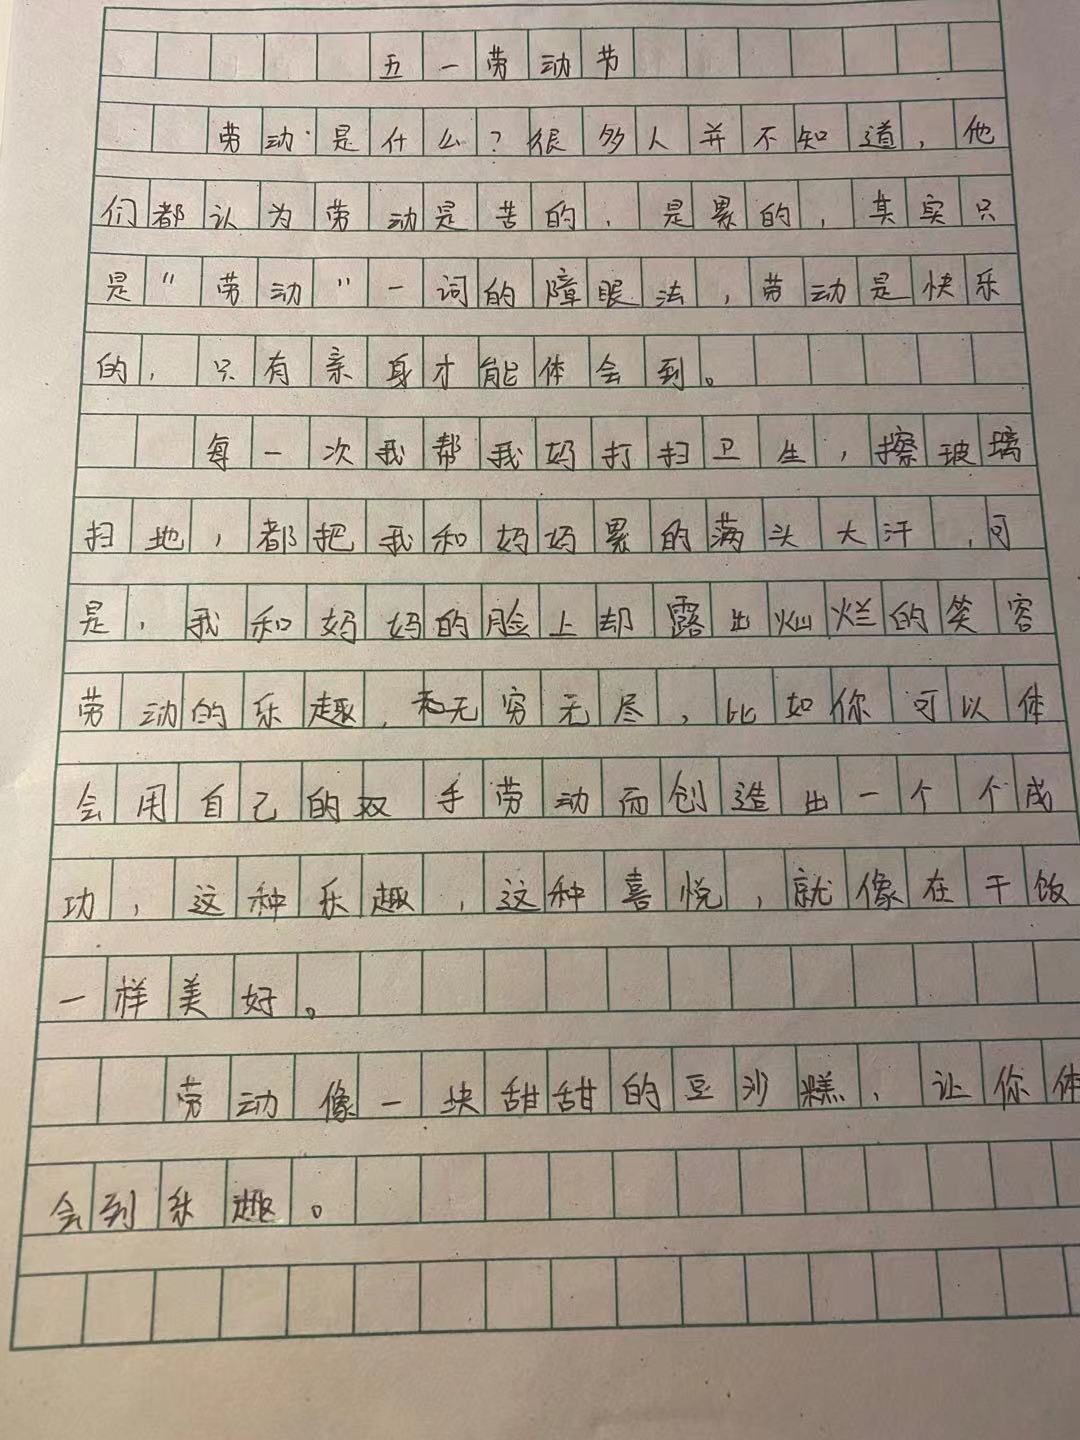 五一劳动节
劳动是什么？很多人并不知道，他
们都认为劳动是苦的，是累的，其实只
是“劳动”一词的障眼法，劳动是快乐
的，只有亲身才能体会到。
每一次我帮我妈打扫卫生，擦玻璃
扫地，都把我和妈妈累的满头大汗，可
是，我和妈妈的脸上却露出灿烂的笑容
劳动的乐趣，无穷无尽，比如你可以体
会用自己的双手劳动而创造出一个个成
功，这种乐趣，这种喜悦，就像在干饭
一样美好。
劳动像一块甜甜的豆沙糕，让你体
会到乐趣。